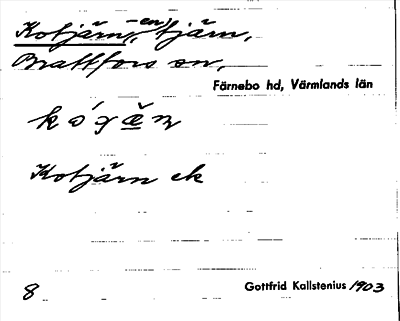 Kotjärn, -en, tjärn,
Brattfors sn,
Färnebo hd, Värmlands län
Kotjärn ek
8
Gottfrid Kallstenius 1903